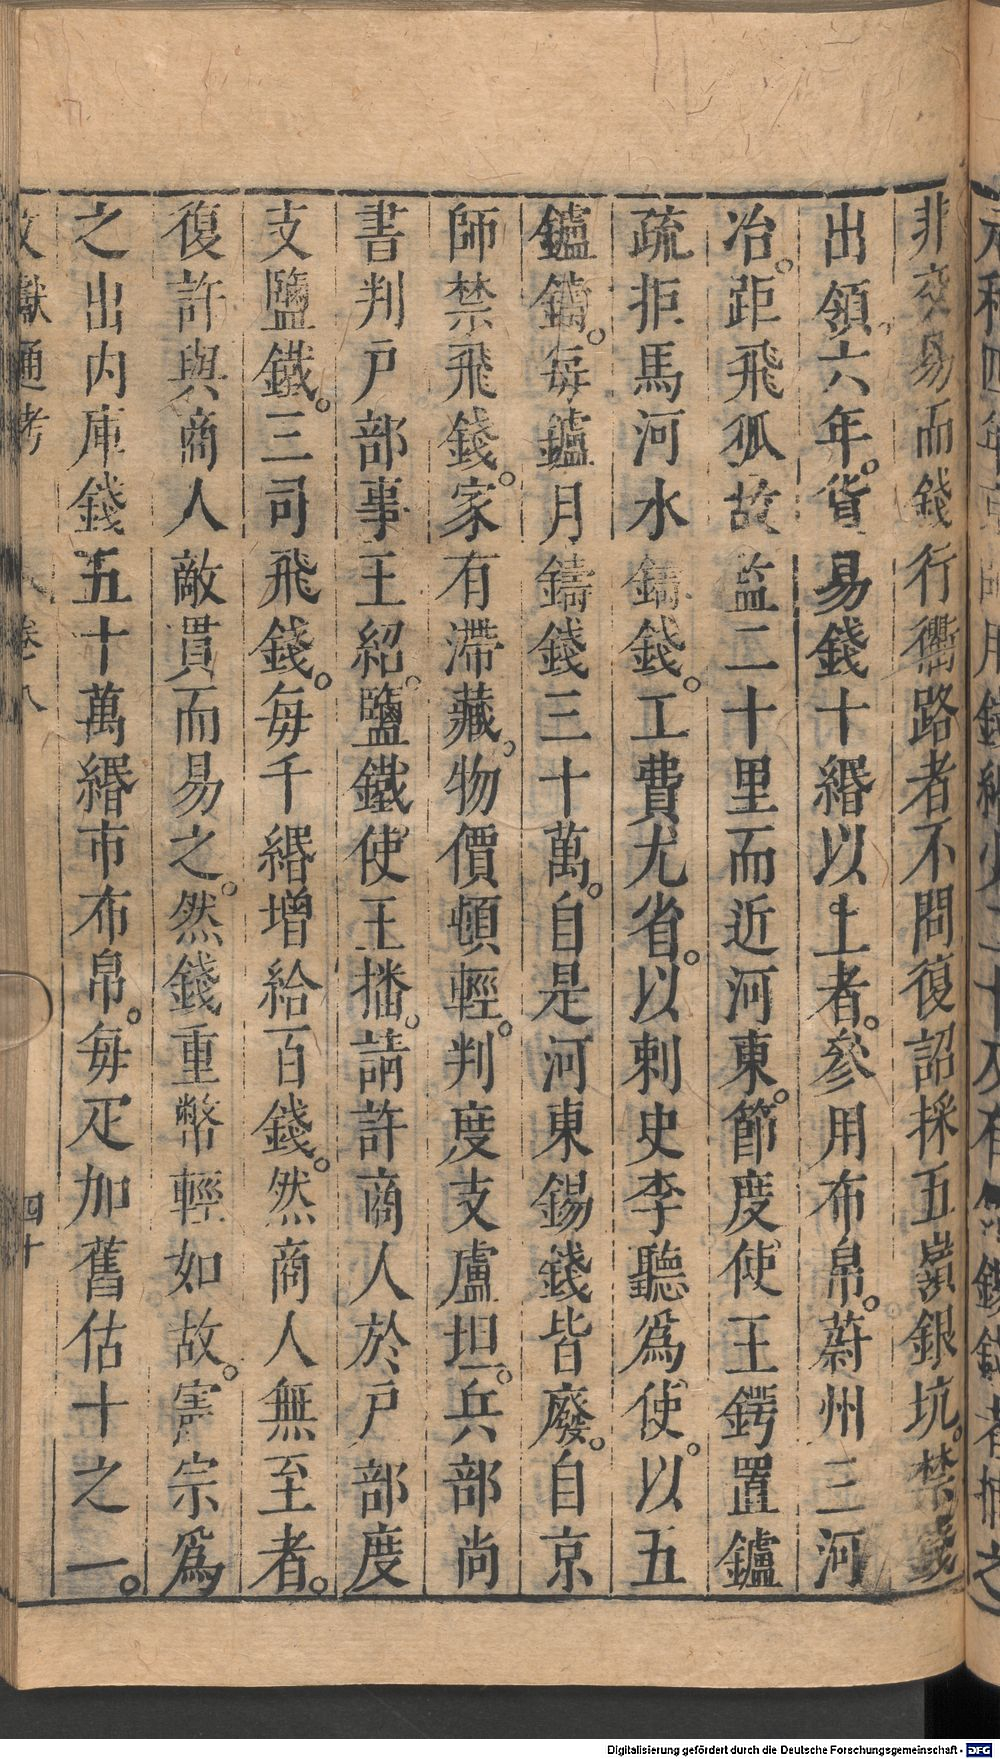 元和四年京師用鉛錫錢
非交易而錢行衢路者不問復詔採五嶺銀坑。禁錢
出嶺。六年。貨易錢十緡以上者。參用布帛。蔚州三河
冶。距飛狐故監二十里而近河東。節度使王鍔置鑪
疏拒馬河水鑄錢。工費尤省。以刺史李聽爲使。以五
鑪鑄。每鑪月鑄錢三十萬。自是河東錫錢皆廢。自京
師禁飛錢。家有滯藏。物價頓輕。判度支盧坦。兵部尚
書判戶部事王紹。鹽鐵使王播。請許商人於戶部度
支鹽鐵。三司飛錢。每千緡增給百錢。然商人無至者。
復許與商人敵貫而易之。然錢重幣輕如故。憲宗爲
之出内庫錢五十萬緡市布帛。每疋加舊估十之一。
文獻通考 卷八 四十
Digitalisierung gefördert durch die Deutsche Forschungsgemeinschaft - DFG